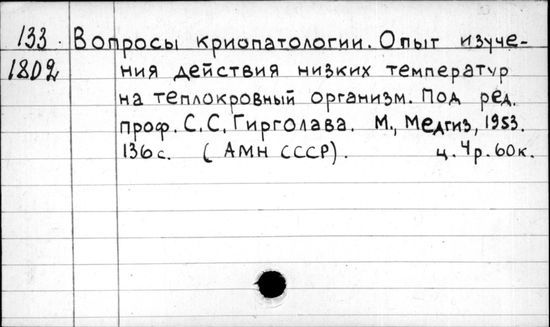 133 Вопросы криопатологии. Опыт изуче-
1802 ния действия низких температур
на теплокровный организм. Под ред.
проф. С.С. Гирголава. М., Медгиз, 1953.
136 с. (АМН СССР). ц. 4 р. 60 к.